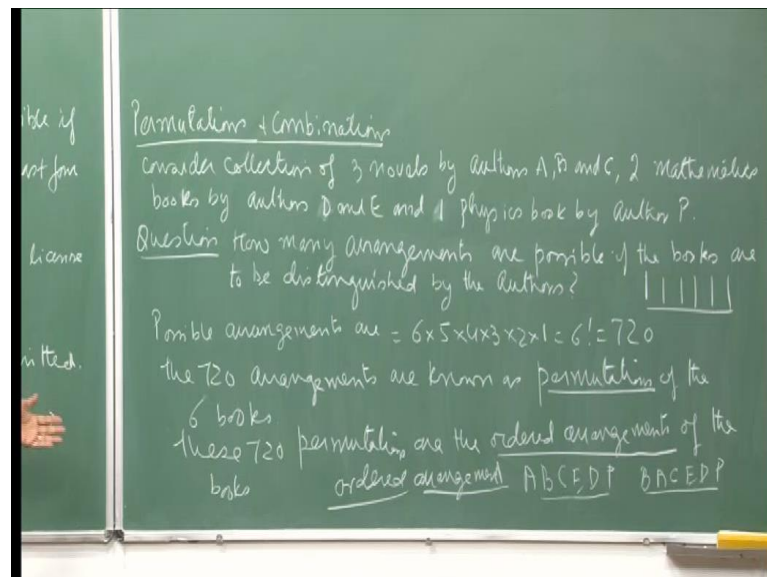 ible if
ast four
license
itted.
Permutations & Combinations
Consider collection of 3 novels by authors A, B and C, 2 mathematics
books by authors D and E and 1 physics book by author P.
Question How many arrangements are possible if the books are
to be distinguished by the authors?
Possible arrangements are = 6x5x4x3x2x1 = 6! = 720
The 720 arrangements are known as permutations of the
6 books
These 720 permutations are the ordered arrangements of the
books ordered arrangement ABCEDP BACEDP